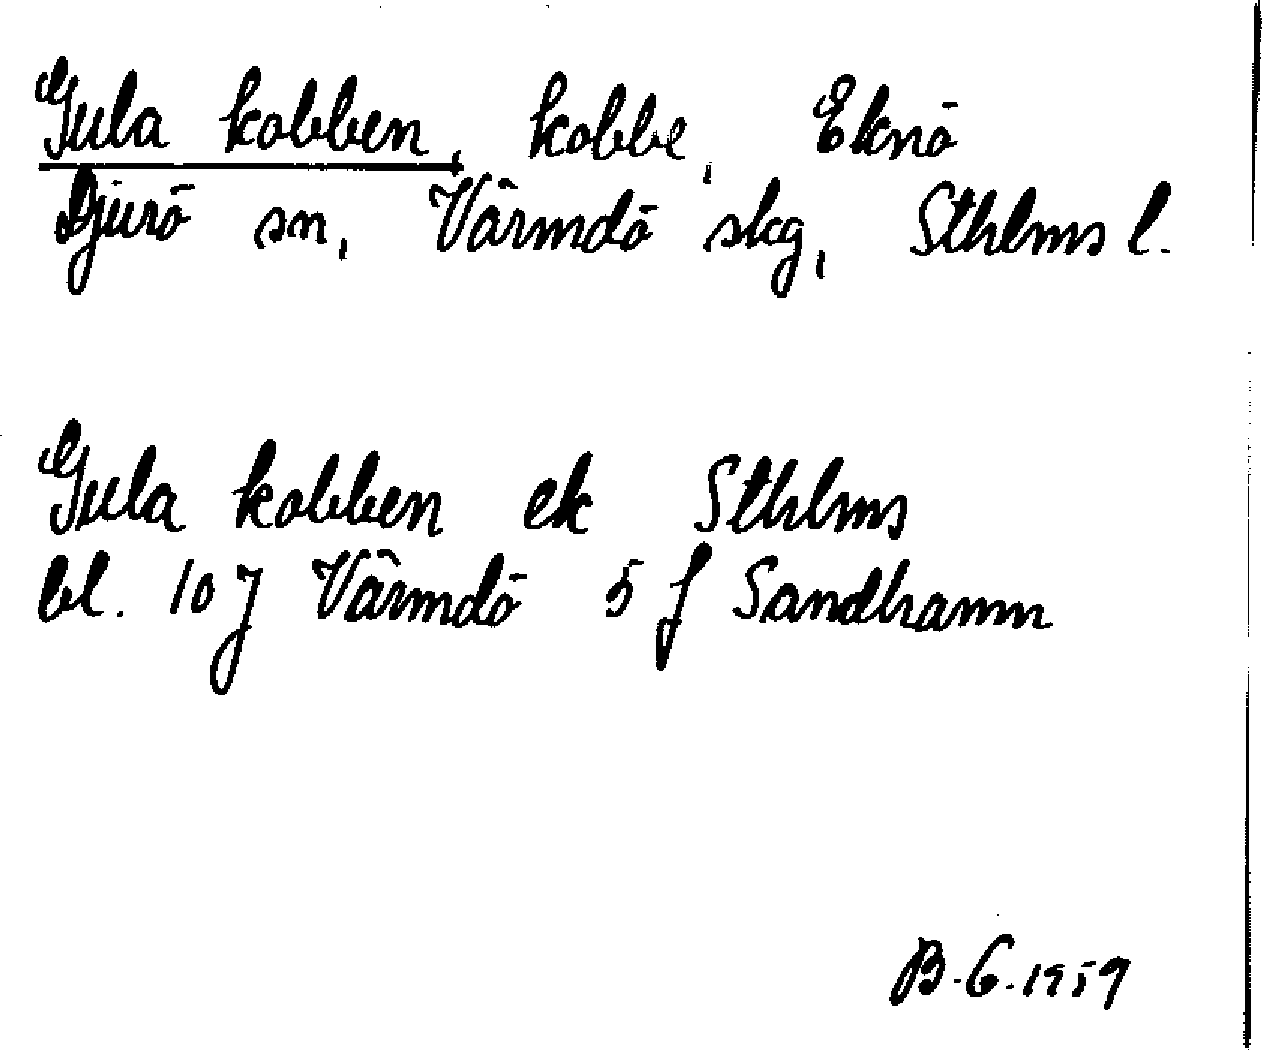 Gula kobben, kobbe, Eknö
Djurö sn, Värmdö skg, Sthlms l.
Gula kobben ek Sthlms
bl. 10 J Värmdö 5 f Sandhamn
B.G. 1959